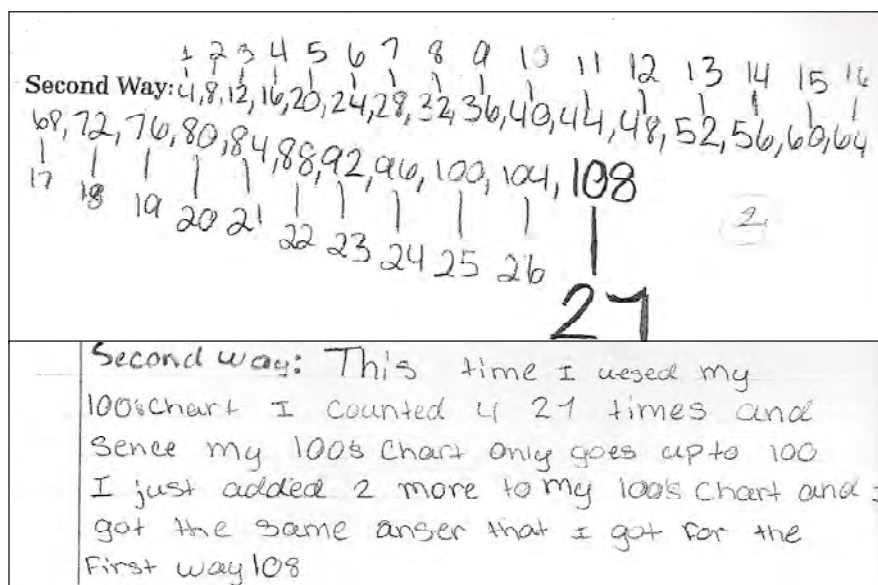 1 2 3 4 5 6 7 8 9 10 11 12 13 14 15 16
Second Way: 4, 8, 12, 16, 20, 24, 28, 32, 36, 40, 44, 48, 52, 56, 60, 64
68, 72, 76, 80, 84, 88, 92, 96, 100, 104, 108
17 18 19 20 21 22 23 24 25 26 27
2
Second way: This time I uesed my
100s chart I counted 4 27 times and
Sence my 100s Chart only goes up to 100
I just added 2 more to my 100s Chart and I
got the same anser that I got for the
First way 108